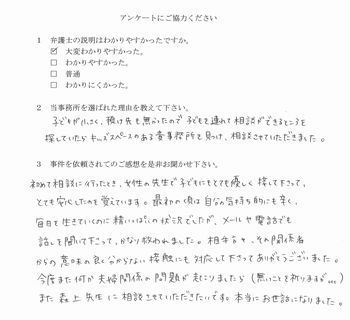 アンケートにご協力ください
1 弁護士の説明はわかりやすかったですか。
☑ 大変わかりやすかった。
□ わかりやすかった。
□ 普通
□ わかりにくかった。
2 当事務所を選ばれた理由を教えて下さい。
子どもが小さく、預け先も無かったので子どもを連れて相談ができるところを
探していたらキッズスペースのある貴事務所を見つけ、相談させていただきました。
3 事件を依頼されてのご感想を是非お聞かせ下さい。
初めて相談に行ったとき、女性の先生で子どもにもとても優しく接して下さって、
とても安心したのを覚えています。最初の頃は自分の気持ち的にも辛く、
毎日を生きていくのに精いっぱいの状況でしたが、メールや電話でも
話しを聞いて下さって、かなり救われました。相手方や、その関係者
からの意味の良く分からない接触にも対応して下さってありがとうございました。
今度また何か夫婦関係の問題が起こりましたら(無いことを祈りますが…)
また森上先生に相談させていただきたいです。本当にお世話になりました。